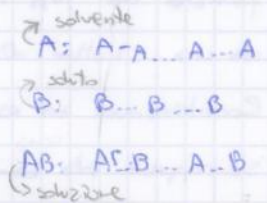 solvente
A: A-A...A...A
soluto
B: B...B...B
AB: A...B...A..B
soluzione